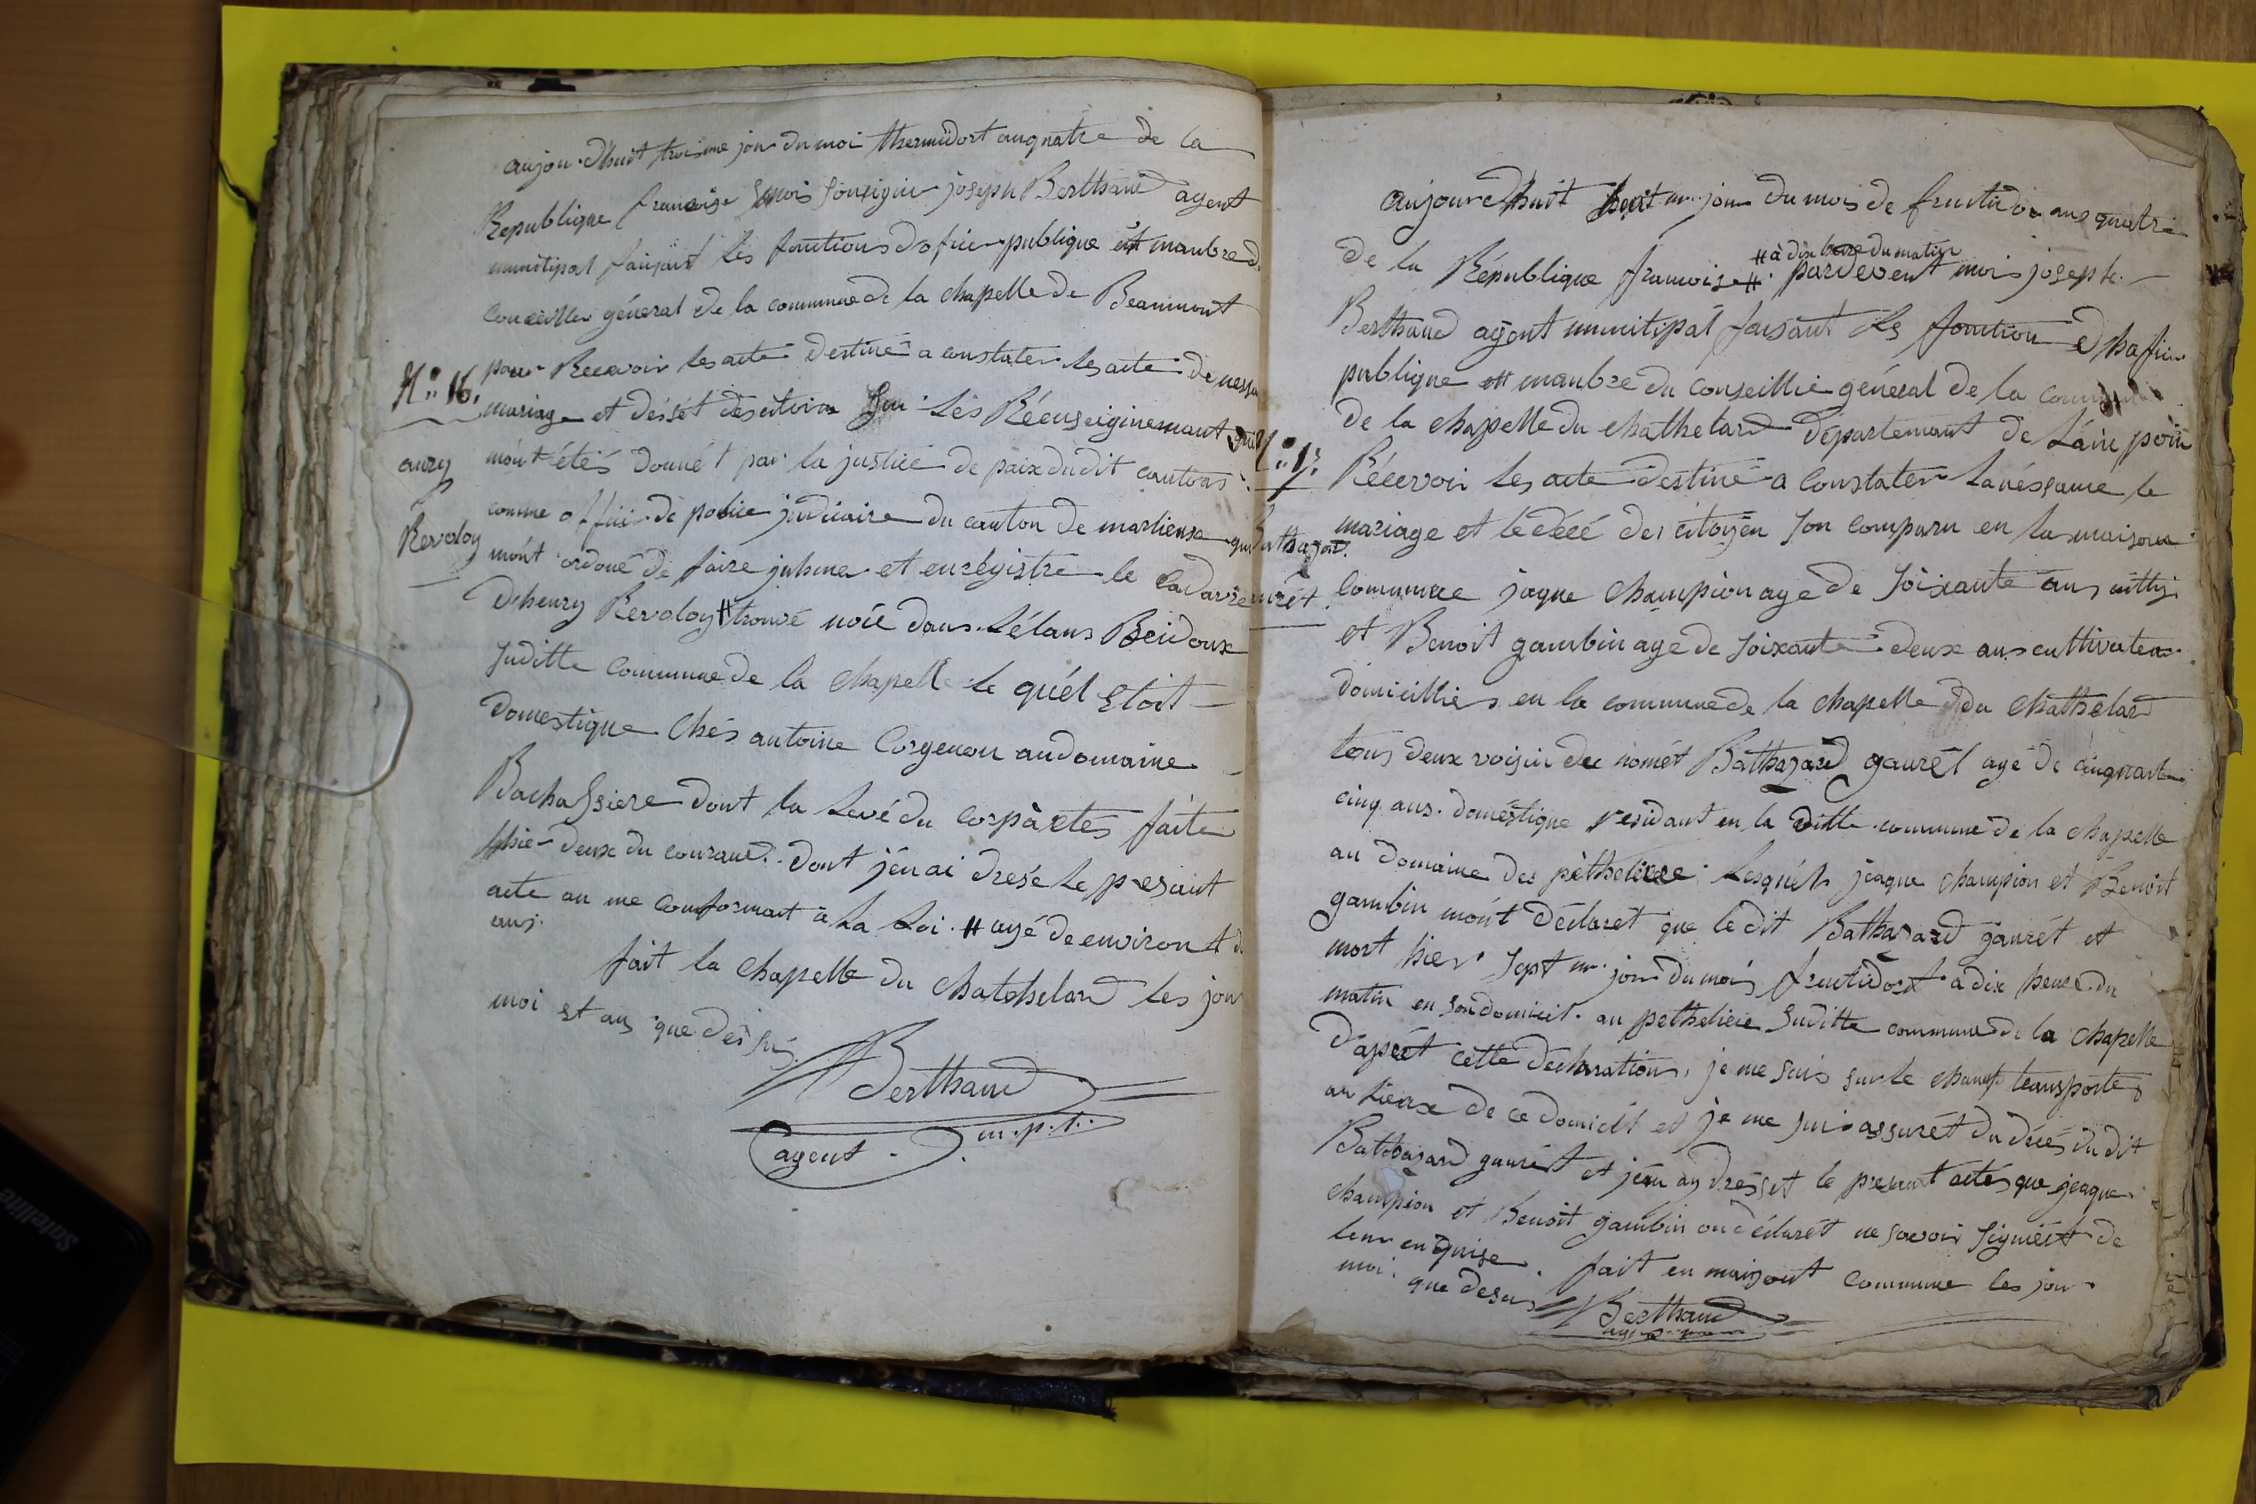 aujou dhuit troisime jour du moi thermidort anquatre de la
Republique francoise moi sousigne joseph Berthaud agent
municipal faisant les fonctions dofficier publique et manbre d
conceiller général de la commune de la chapelle de Beaumont
pour Recevoir les acte destiné a constater les acte de
mariage et desét des citoien sur les Réenseignemant
mont étés donnét par la justice de paix dudit cantons
comme officier de police judiciaire du canton de marlieux qui
mont ordoné de faire juhmer et enrégistre le cadavre
dhenry Revoloy # trouvé noié dans létans Beidoux
suditte commune de la chapelle le quél etoit
domestique chés antoine Corgenon au domaine
Bachassiere dont la levé du corp à etes faite
hier deux du courand. dont jén ai dresé le presant
acte an me conformant à la loi # agé de environt
ans.
fait la chapelle du chatehelard les jour
moi et ans que desus
Berthaud
agent m.p.l.
N° 16.
anry
Revoloy
aujourdhuit huit me jour du mois de fructidor ans quatre
de la République francoise # pardevent moi joseph
# à dix heure du matin
Berthaud agent municipal faisant les fonction dhoficier
publique et manbre du conseillie général de la
de la chapelle du chathelard departemant de Láin pour
Récevoir les acte destiné a constater lanéssance le
mariage et le décé des citoyen son comparu en la maison
commune jaque champion age de soixante ans
et Benoit gambin agé de soixante deux ans cultivateur
domicilliers en la commune de la chapelle du chathelard
tous deux voisin du nomét Bathazard gaurét agé de cinquante
cinq ans. doméstique residant en la ditte commune de la chapelle
au domaine des péthelieze lesquéls jeaque champion et Benoit
gambin món't déclarét que le dit Bathazard gaurét et
mort hier sept me jour du mois fructidort à dix heure du
matin en son domicil. au pethelieie suditte commune de la chapelle
dapérét cette declaration, je me suis sur le champ transporte
au lieux de ce domicilt et je me sui assurét du décés du dit
Bathazard gaurét et jén ay dresset le presant actes que jeaque
champion et Benoit gambin on déclarét ne savoir signiért de
leur enquise. fait en maisont commune les jour
moi. que desus
Berthaud
N° 17
Bathazar